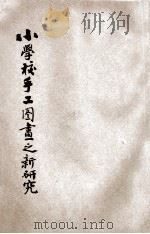 小學校手工图畫之新研究
mtoou.info